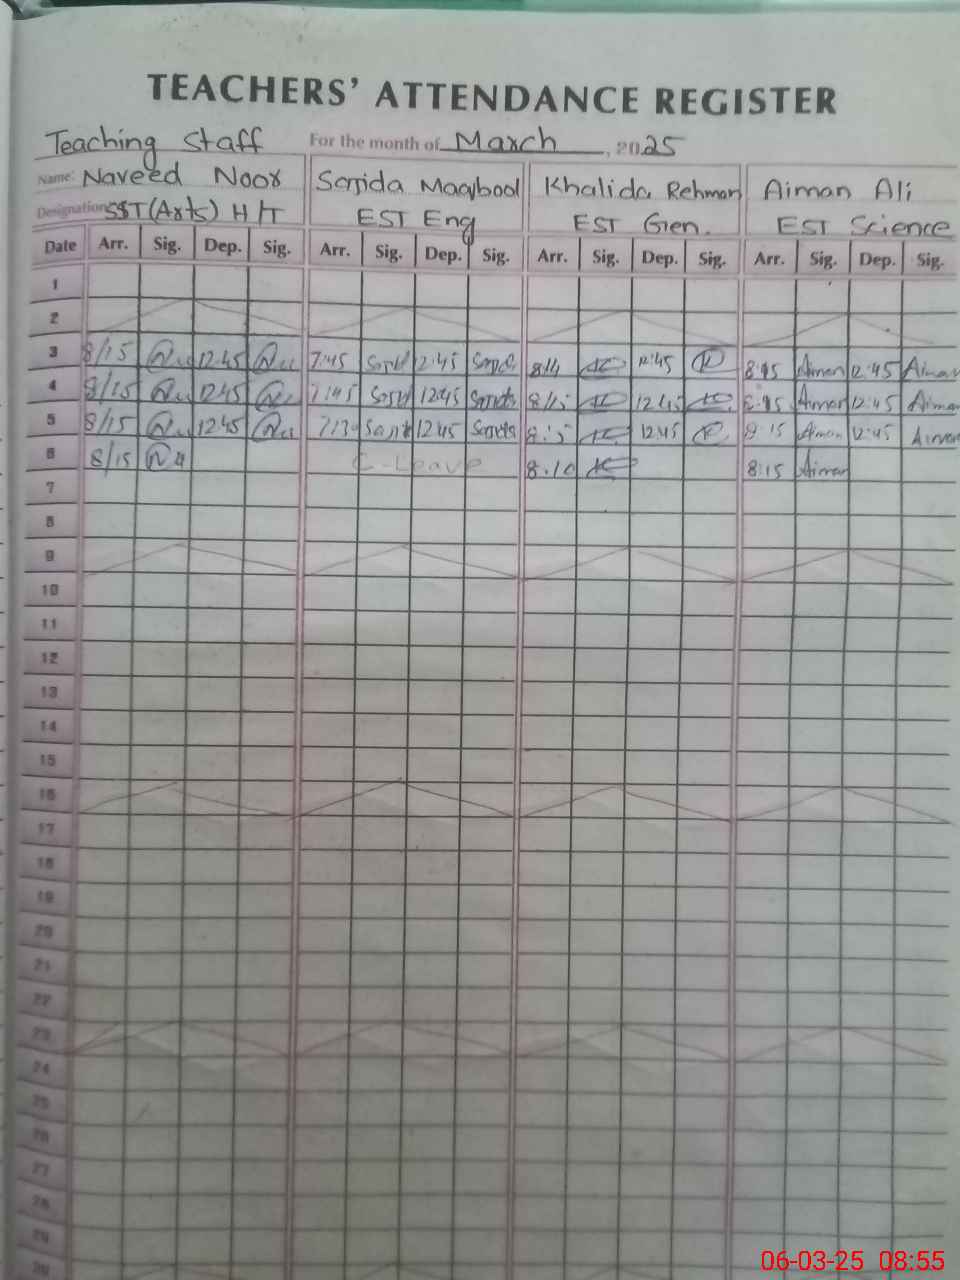 TEACHERS' ATTENDANCE REGISTER
Teaching Staff For the month of March, 2025
Name: Naveed Noor Sajida Maqbool Khalida Rehman Aiman Ali
Designation SST (Arts) H/T EST Eng EST Gen. EST Science
Date Arr. Sig. Dep. Sig. Arr. Sig. Dep. Sig. Arr. Sig. Dep. Sig. Arr. Sig. Dep. Sig.
1
2
3 8/15 12.45 7:45 12:45 12:45 8:15 Aiman 12:45 Aiman
4 8/15 12.45 7:45 12:45 8/15 12:45 8:15 Aiman 12:45 Aiman
5 8/15 12.45 12:45 12:45 8:15 Aiman 12:45 Aiman
6 8/15 C-Leave 8.10 8:15 Aiman
7
8
9
10
11
12
13
14
15
16
17
18
19
20
21
22
23
24
25
26
27
28
29
06-03-25 08:55